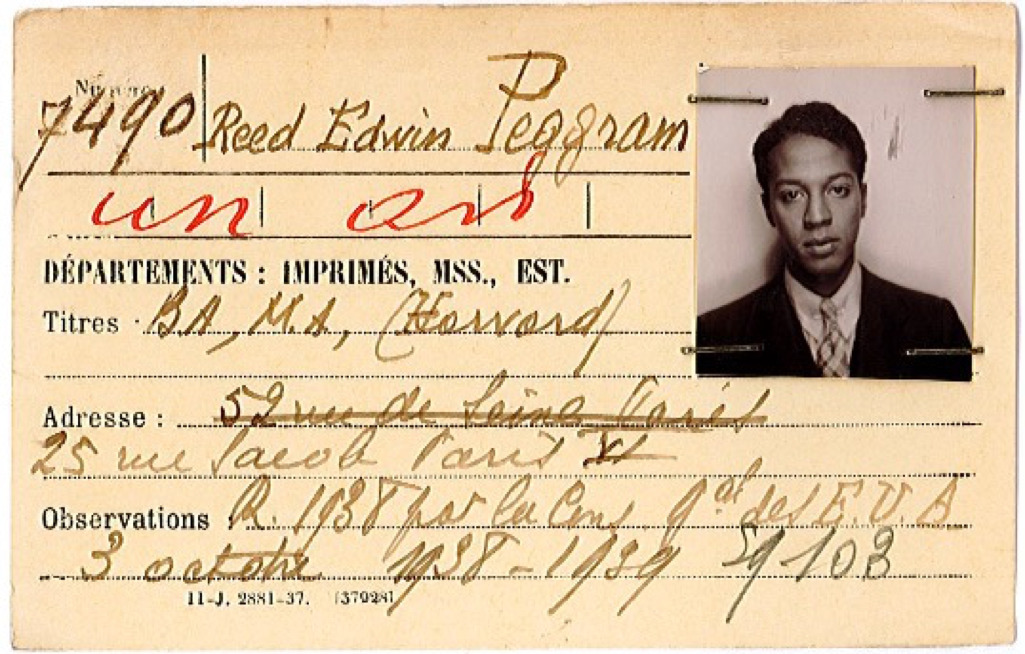 Numéro
7490 Reed Edwin Peagram
un an
DÉPARTEMENTS : IMPRIMÉS, MSS., EST.
Titres : BA, M.A, (Harvard)
Adresse : 52 rue de Seine Paris
25 rue Jacob Paris VI
Observations : R. 1938 par le Cons. gal des E.U.A.
3 octobre 1938-1939 59103
11-J. 2881-37. (37928)